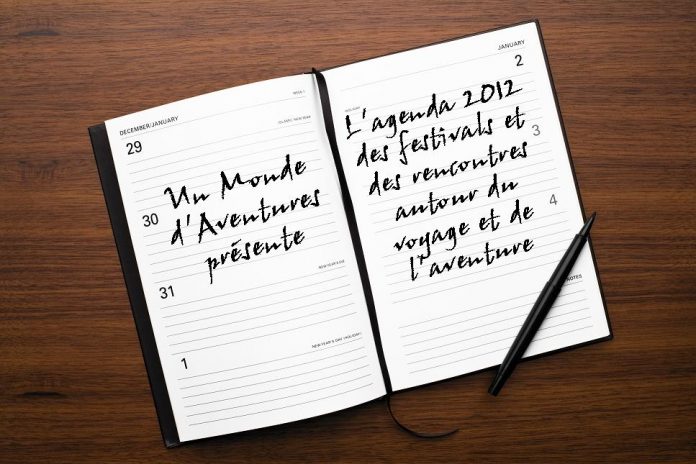 DECEMBER/JANUARY
WEEK 1
29
ISLAMIC NEW YEAR
Un Monde
d'Aventures
présente
30
31
NEW YEAR'S EVE
1
NEW YEAR'S DAY (HOLIDAY)
JANUARY
2
HOLIDAY
L'agenda 2012
des festivals et
des rencontres
autour du
voyage et de
l'aventure
3
4
NOTES